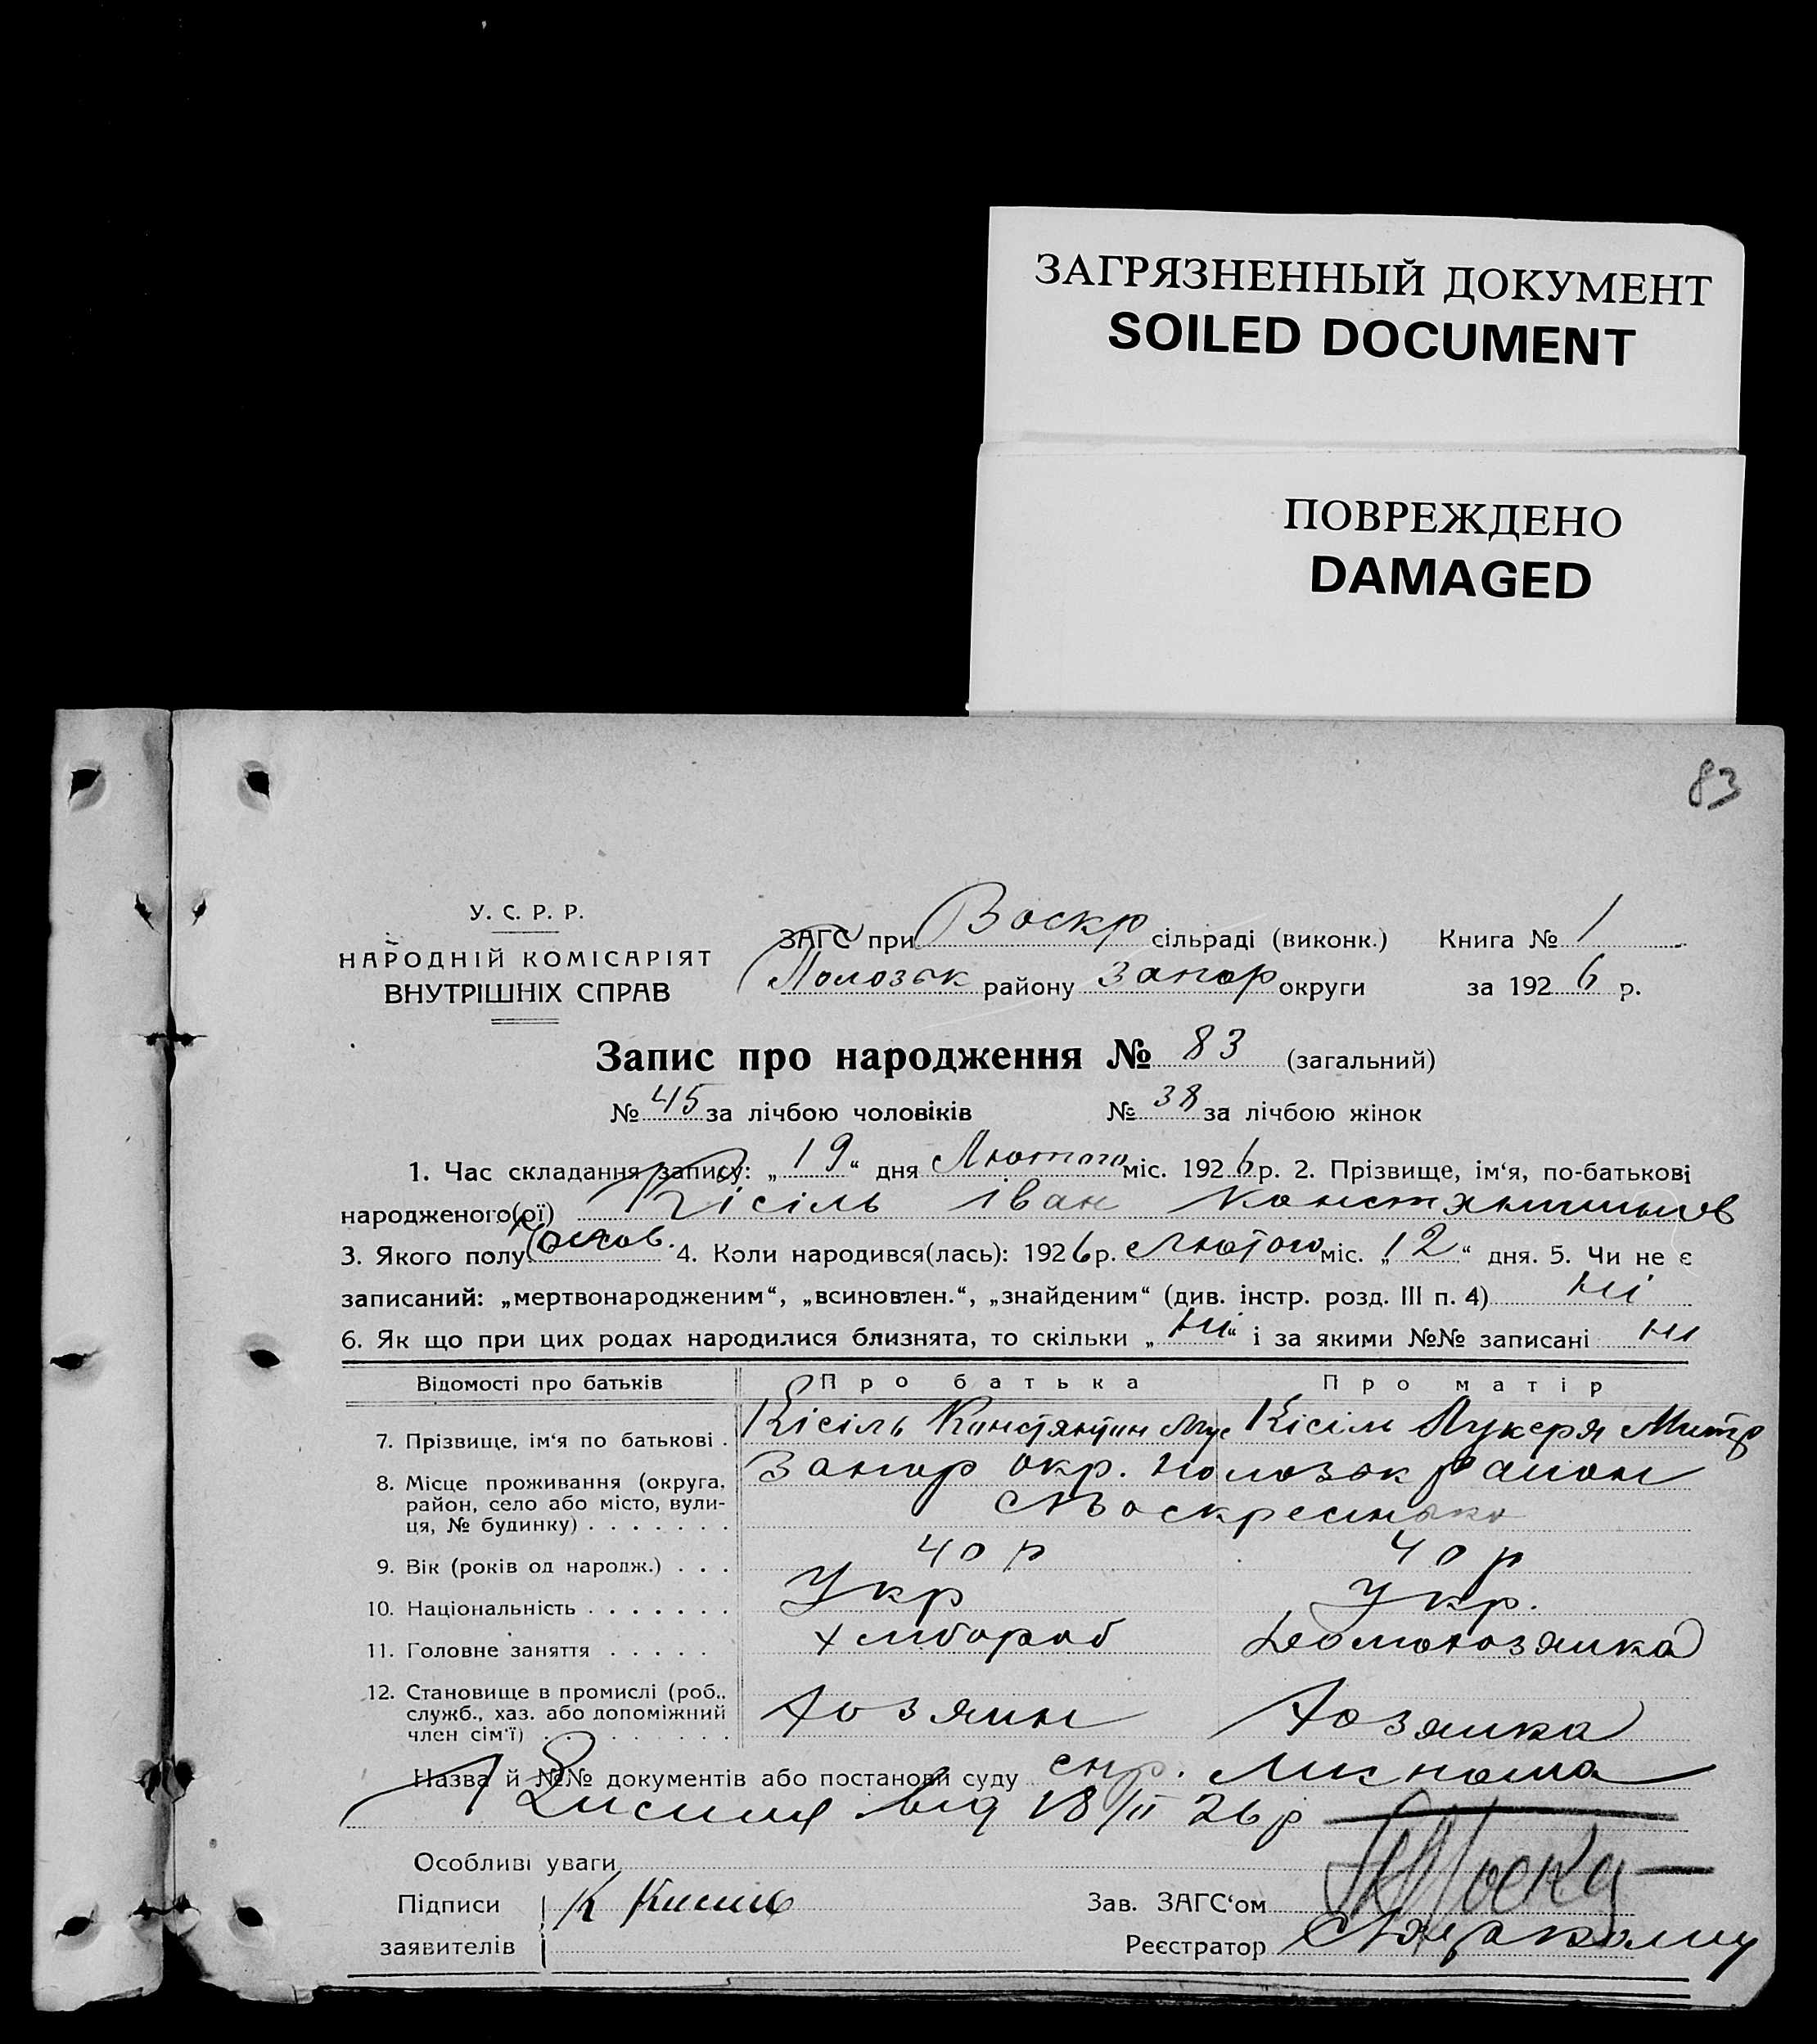 ЗАГРЯЗНЕННЫЙ ДОКУМЕНТ
SOILED DOCUMENT
ПОВРЕЖДЕНО
DAMAGED
83
У. С. Р. Р.
НАРОДНІЙ КОМІСАРІЯТ
ВНУТРІШНІХ СПРАВ
ЗАГС при Воскр сільраді (виконк.) Книга № 1
Полозьк району Запор округи за 1926 р.
Запис про народження № 83 (загальний)
№ 45 за лічбою чоловіків № 38 за лічбою жінок
1. Час складання запису: „19“ дня Лютого міс. 1926 р. 2. Прізвище, ім‘я, по-батькові
народженого(ої) Кісіль Іван Константинов
3. Якого полу 4. Коли народився(лась): 1926 р. Лютого міс. „12“ дня. 5. Чи не є
записаний: „мертвонародженим“, „всиновлен.“, „знайденим“ (див. інстр. розд. III п. 4) ні
6. Як що при цих родах народилися близнята, то скільки „ні“ і за якими №№ записані ні
Відомості про батьків Про батька Про матір
7. Прізвище, ім‘я по батькові . Кісіль Константин Мус Кісіль Лукеря Митр
8. Місце проживання (округа, Запор окр. Полозьк район
район, село або місто, вули-
ця, № будинку) . . . . . . .
9. Вік (років од народж.) . . . 40 р 40 р
10. Національність . . . . . . . Укр Укр.
11. Головне заняття . . . . . Хлібороб Домохозяйка
12. Становище в промислі (роб.,
служб., хаз. або допоміжний Хозяин Хозяйка
член сім‘ї) . . . . . . . . .
Назва й №№ документів або постанови суду спр.
від 18/II 26 р
Особливі уваги
Підписи К Кисиль Зав. ЗАГС‘ом
заявителів Реєстратор